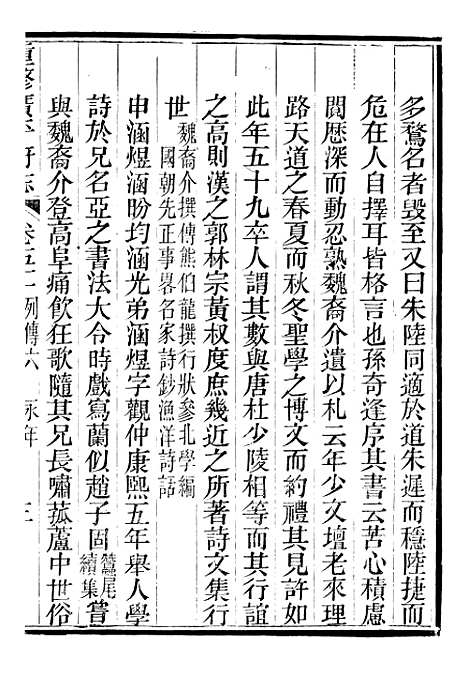 多騖名者毁至又曰朱陸同適於道朱遲而穩陸捷而
危在人自擇耳皆格言也孫奇逢序其書云苦心積慮
閱歷深而動忍熟魏裔介遺以札云年少文壇老來理
路天道之春夏而秋冬聖學之博文而約禮其見許如
此年五十九卒人謂其數與唐杜少陵相等而其行誼
之高則漢之郭林宗黃叔度庶幾近之所著詩文集行
世魏裔介撰傳熊伯龍撰行狀參北學編
國朝先正事畧名家詩鈔漁洋詩話
申涵煜涵盼均涵光弟涵煜字觀仲康熙五年舉人學
詩於兄名亞之書法大令時戲寫蘭似趙子固蠶尾續集嘗
與魏裔介登高阜痛飲狂歌隨其兄長嘯菰蘆中世俗
重修廣平府志 卷五十 列傳六 永年 三